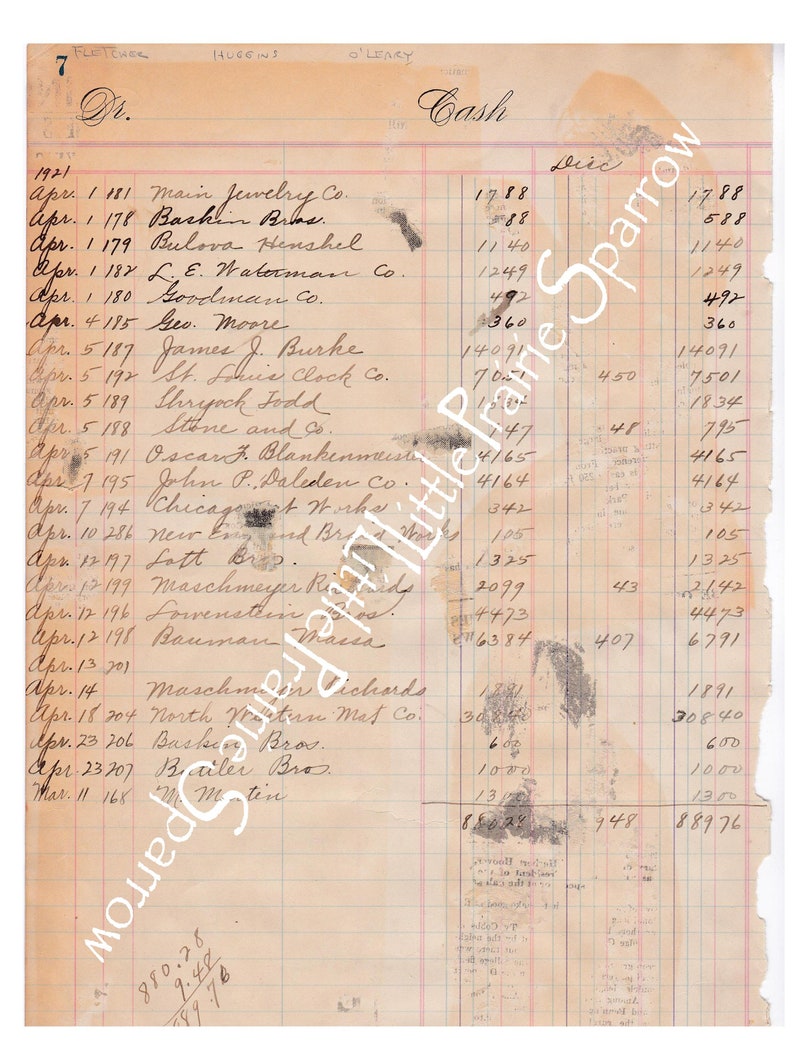 FLETCHER HUGGINS O'LEARY
7
Dr. Cash
1921 Disc
Apr. 1 181 Main Jewelry Co. 1788 1788
Apr. 1 178 Baskin Bros. 588 588
Apr. 1 179 Bulova Henshel 1140 1140
Apr. 1 182 L. E. Waterman Co. 1249 1249
Apr. 1 180 Goodman Co. 492 492
Apr. 4 185 Geo. Moore 360 360
Apr. 5 187 James J. Burke 14091 14091
Apr. 5 192 St. Louis Clock Co. 7051 450 7501
Apr. 5 189 Shryock Todd 1834 1834
Apr. 5 188 Stone and Co. 747 48 795
Apr. 5 191 Oscar F. Blankenmeister 4165 4165
Apr. 7 195 John P. Daleden Co. 4164 4164
Apr. 7 194 Chicago Works 342 342
Apr. 10 286 New England Braid Works 105 105
Apr. 12 197 Lott Bros. 1325 1325
Apr. 12 199 Maschmeyer Richards 2099 43 2142
Apr. 12 196 Lowenstein Bros. 4473 4473
Apr. 12 198 Bauman Massa 6384 407 6791
Apr. 13 201
Apr. 14 Maschmeyer Richards 1891 1891
Apr. 18 204 North Western Mat Co. 30840 30840
Apr. 23 206 Baskin Bros. 600 600
Apr. 23 207 Buttler Bros. 1000 1000
Mar. 11 168 M. Martin 1300 1300
88028 948 88976
880.28
9.48
89.76
Little Prairie Sparrow
Little Prairie Sparrow
Herbert Hoover,